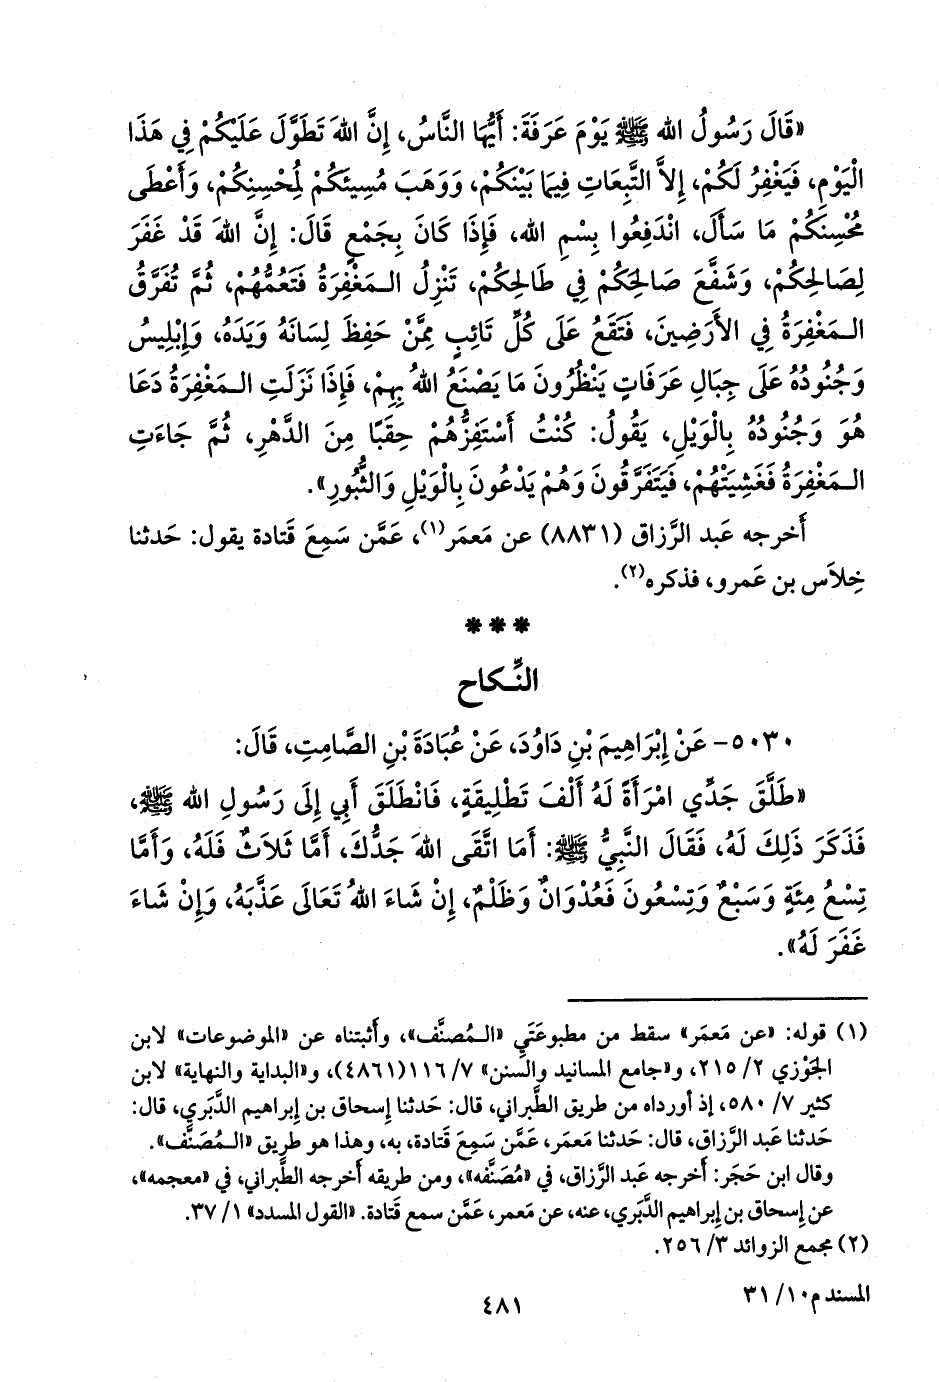 «قَالَ رَسُولُ الله ﷺ يَوْمَ عَرَفَةَ: أَيُّهَا النَّاسُ، إِنَّ اللهَ تَطَوَّلَ عَلَيْكُمْ فِي هَذَا
الْيَوْمِ، فَيَغْفِرُ لَكُمْ، إِلاَّ التَّبِعَاتِ فِيمَا بَيْنَكُمْ، وَوَهَبَ مُسِيئَكُمْ لِمُحْسِنِكُمْ، وَأَعْطَى
مُحْسِنَكُمْ مَا سَأَلَ، انْدَفِعُوا بِسْمِ الله، فَإِذَا كَانَ بِجَمْعٍ قَالَ: إِنَّ اللهَ قَدْ غَفَرَ
لِصَالِحِكُمْ، وَشَفَّعَ صَالِحَكُمْ فِي طَالِحِكُمْ، تَنْزِلُ الـمَغْفِرَةُ فَتَعُمُّهُمْ، ثُمَّ تُفَرَّقُ
الـمَغْفِرَةُ فِي الأَرَضِينَ، فَتَقَعُ عَلَى كُلِّ تَائِبٍ مِمَّنْ حَفِظَ لِسَانَهُ وَيَدَهُ، وَإِبْلِيسُ
وَجُنُودُهُ عَلَى جِبَالِ عَرَفَاتٍ يَنْظُرُونَ مَا يَصْنَعُ اللهُ بِهِمْ، فَإِذَا نَزَلَتِ الـمَغْفِرَةُ دَعَا
هُوَ وَجُنُودُهُ بِالْوَيْلِ، يَقُولُ: كُنْتُ أَسْتَفِزُّهُمْ حِقَبًا مِنَ الدَّهْرِ، ثُمَّ جَاءَتِ
الـمَغْفِرَةُ فَغَشِيَتْهُمْ، فَيَتَفَرَّقُونَ وَهُمْ يَدْعُونَ بِالْوَيْلِ وَالثُّبُورِ».
أَخرجه عَبد الرَّزاق (٨٨٣١) عن مَعمَر(١)، عَمَّن سَمِعَ قَتادة يقول: حَدثنا
خِلاَس بن عَمرو، فذكره(٢).
***
النِّـكاح
٥٠٣٠- عَنْ إِبْرَاهِيمَ بْنِ دَاوُدَ، عَنْ عُبَادَةَ بْنِ الصَّامِتِ، قَالَ:
«طَلَّقَ جَدِّي امْرَأَةً لَهُ أَلْفَ تَطْلِيقَةٍ، فَانْطَلَقَ أَبِي إِلَى رَسُولِ الله ﷺ،
فَذَكَرَ ذَلِكَ لَهُ، فَقَالَ النَّبِيُّ ﷺ: أَمَا اتَّقَى اللهَ جَدُّكَ، أَمَّا ثَلاَثٌ فَلَهُ، وَأَمَّا
تِسْعُ مِئَةٍ وَسَبْعٌ وَتِسْعُونَ فَعُدْوَانٌ وَظَلْمٌ، إِنْ شَاءَ اللهُ تَعَالَى عَذَّبَهُ، وَإِنْ شَاءَ
غَفَرَ لَهُ».
(١) قوله: «عن مَعمَر» سقط من مطبوعَتَيِ «الـمُصنَّف»، وأَثبتناه عن «الموضوعات» لابن
الجَوْزي ٢/ ٢١٥، و«جامع المسانيد والسنن» ٧/ ١١٦(٤٨٦١)، و«البداية والنهاية» لابن
كثير ٧/ ٥٨٠، إذ أورداه من طريق الطَّبراني، قال: حَدثنا إِسحاق بن إِبراهيم الدَّبَري، قال:
حَدثنا عَبد الرَّزاق، قال: حَدثنا مَعمَر، عَمَّن سَمِعَ قَتادة، به، وهذا هو طريق «الـمُصَنَّف».
وقال ابن حَجَر: أَخرجه عَبد الرَّزاق، في «مُصَنَّفه»، ومن طريقه أَخرجه الطَّبراني، في «معجمه»،
عن إِسحاق بن إِبراهيم الدَّبَري، عنه، عن مَعمر، عَمَّن سمع قَتادة. «القول المسدد» ١/ ٣٧.
(٢) مجمع الزوائد ٣/ ٢٥٦.
المسند م١٠/ ٣١
٤٨١